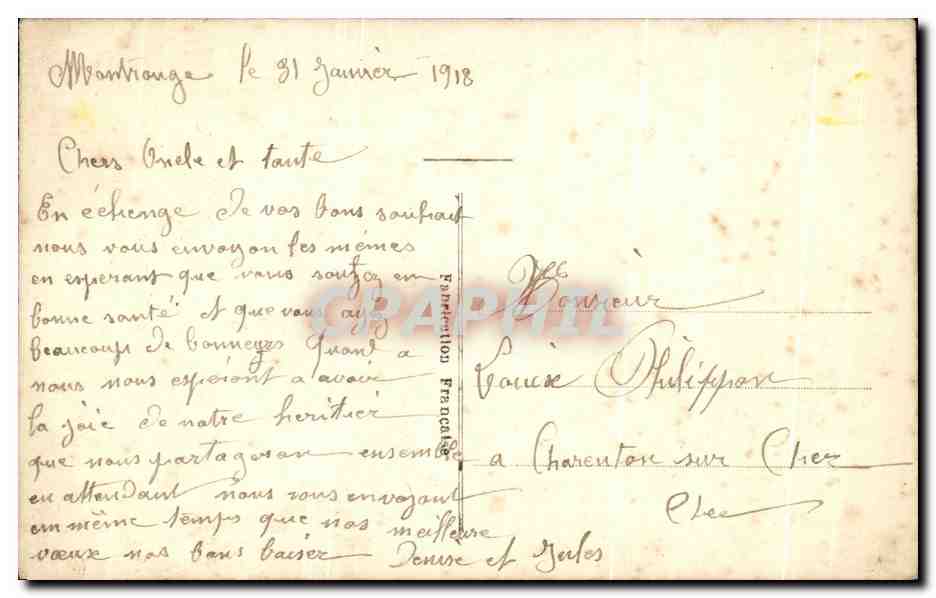 Montrouge le 31 Janvier 1918
Chers Oncle et tante
En échenge de vos bons souhait
nous vous envoyon les mêmes
en esperant que vous soyez em
bonne santé et que vous ayez
beaucoup de bonneurs quand a
nous nous esperont a avoir
la joie de notre heritier
que nous partageron ensemble
en attendant nous vous envoyont
em même temps que nos meilleure
vœux nos bons baiser
Denise et Jules
Fabrication Française
CPAPHIL
Monsieur
Philippon
a Charenton sur Cher
Cher